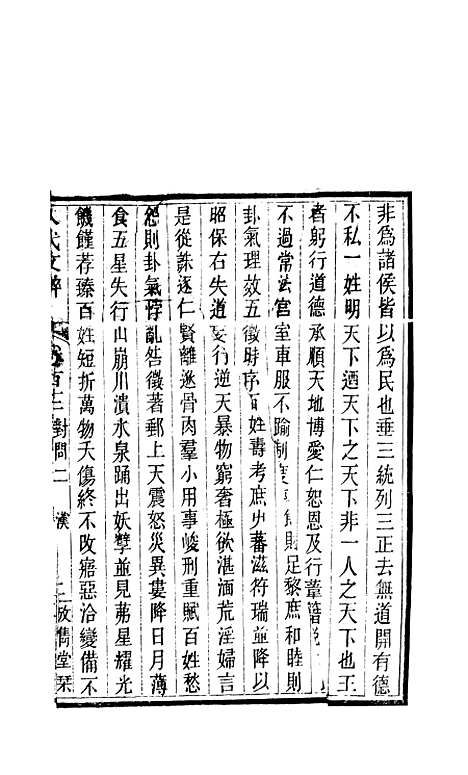 非爲諸侯皆以爲民也垂三統列三正去無道開有德
不私一姓明天下迺天下之天下非一人之天下也王
者躬行道德承順天地博愛仁恕恩及行葦籍稅
不過常法宮室車服不踰制度 則足黎庶和睦則
卦氣理效五徵時序百姓壽考庶屮蕃滋符瑞並降以
昭保右失道妄行逆天暴物窮奢極欲湛湎荒淫婦言
是從誅逐仁賢離逖骨肉羣小用事峻刑重賦百姓愁
怨則卦氣悖亂咎徵著郵上天震怒災異婁降日月薄
食五星失行山崩川潰水泉踊出妖孽並見茀星耀光
饑饉荐臻百姓短折萬物夭傷終不改寤惡洽變備不
八代文粹 卷百十二 對問二 漢 三 攷雋堂栞